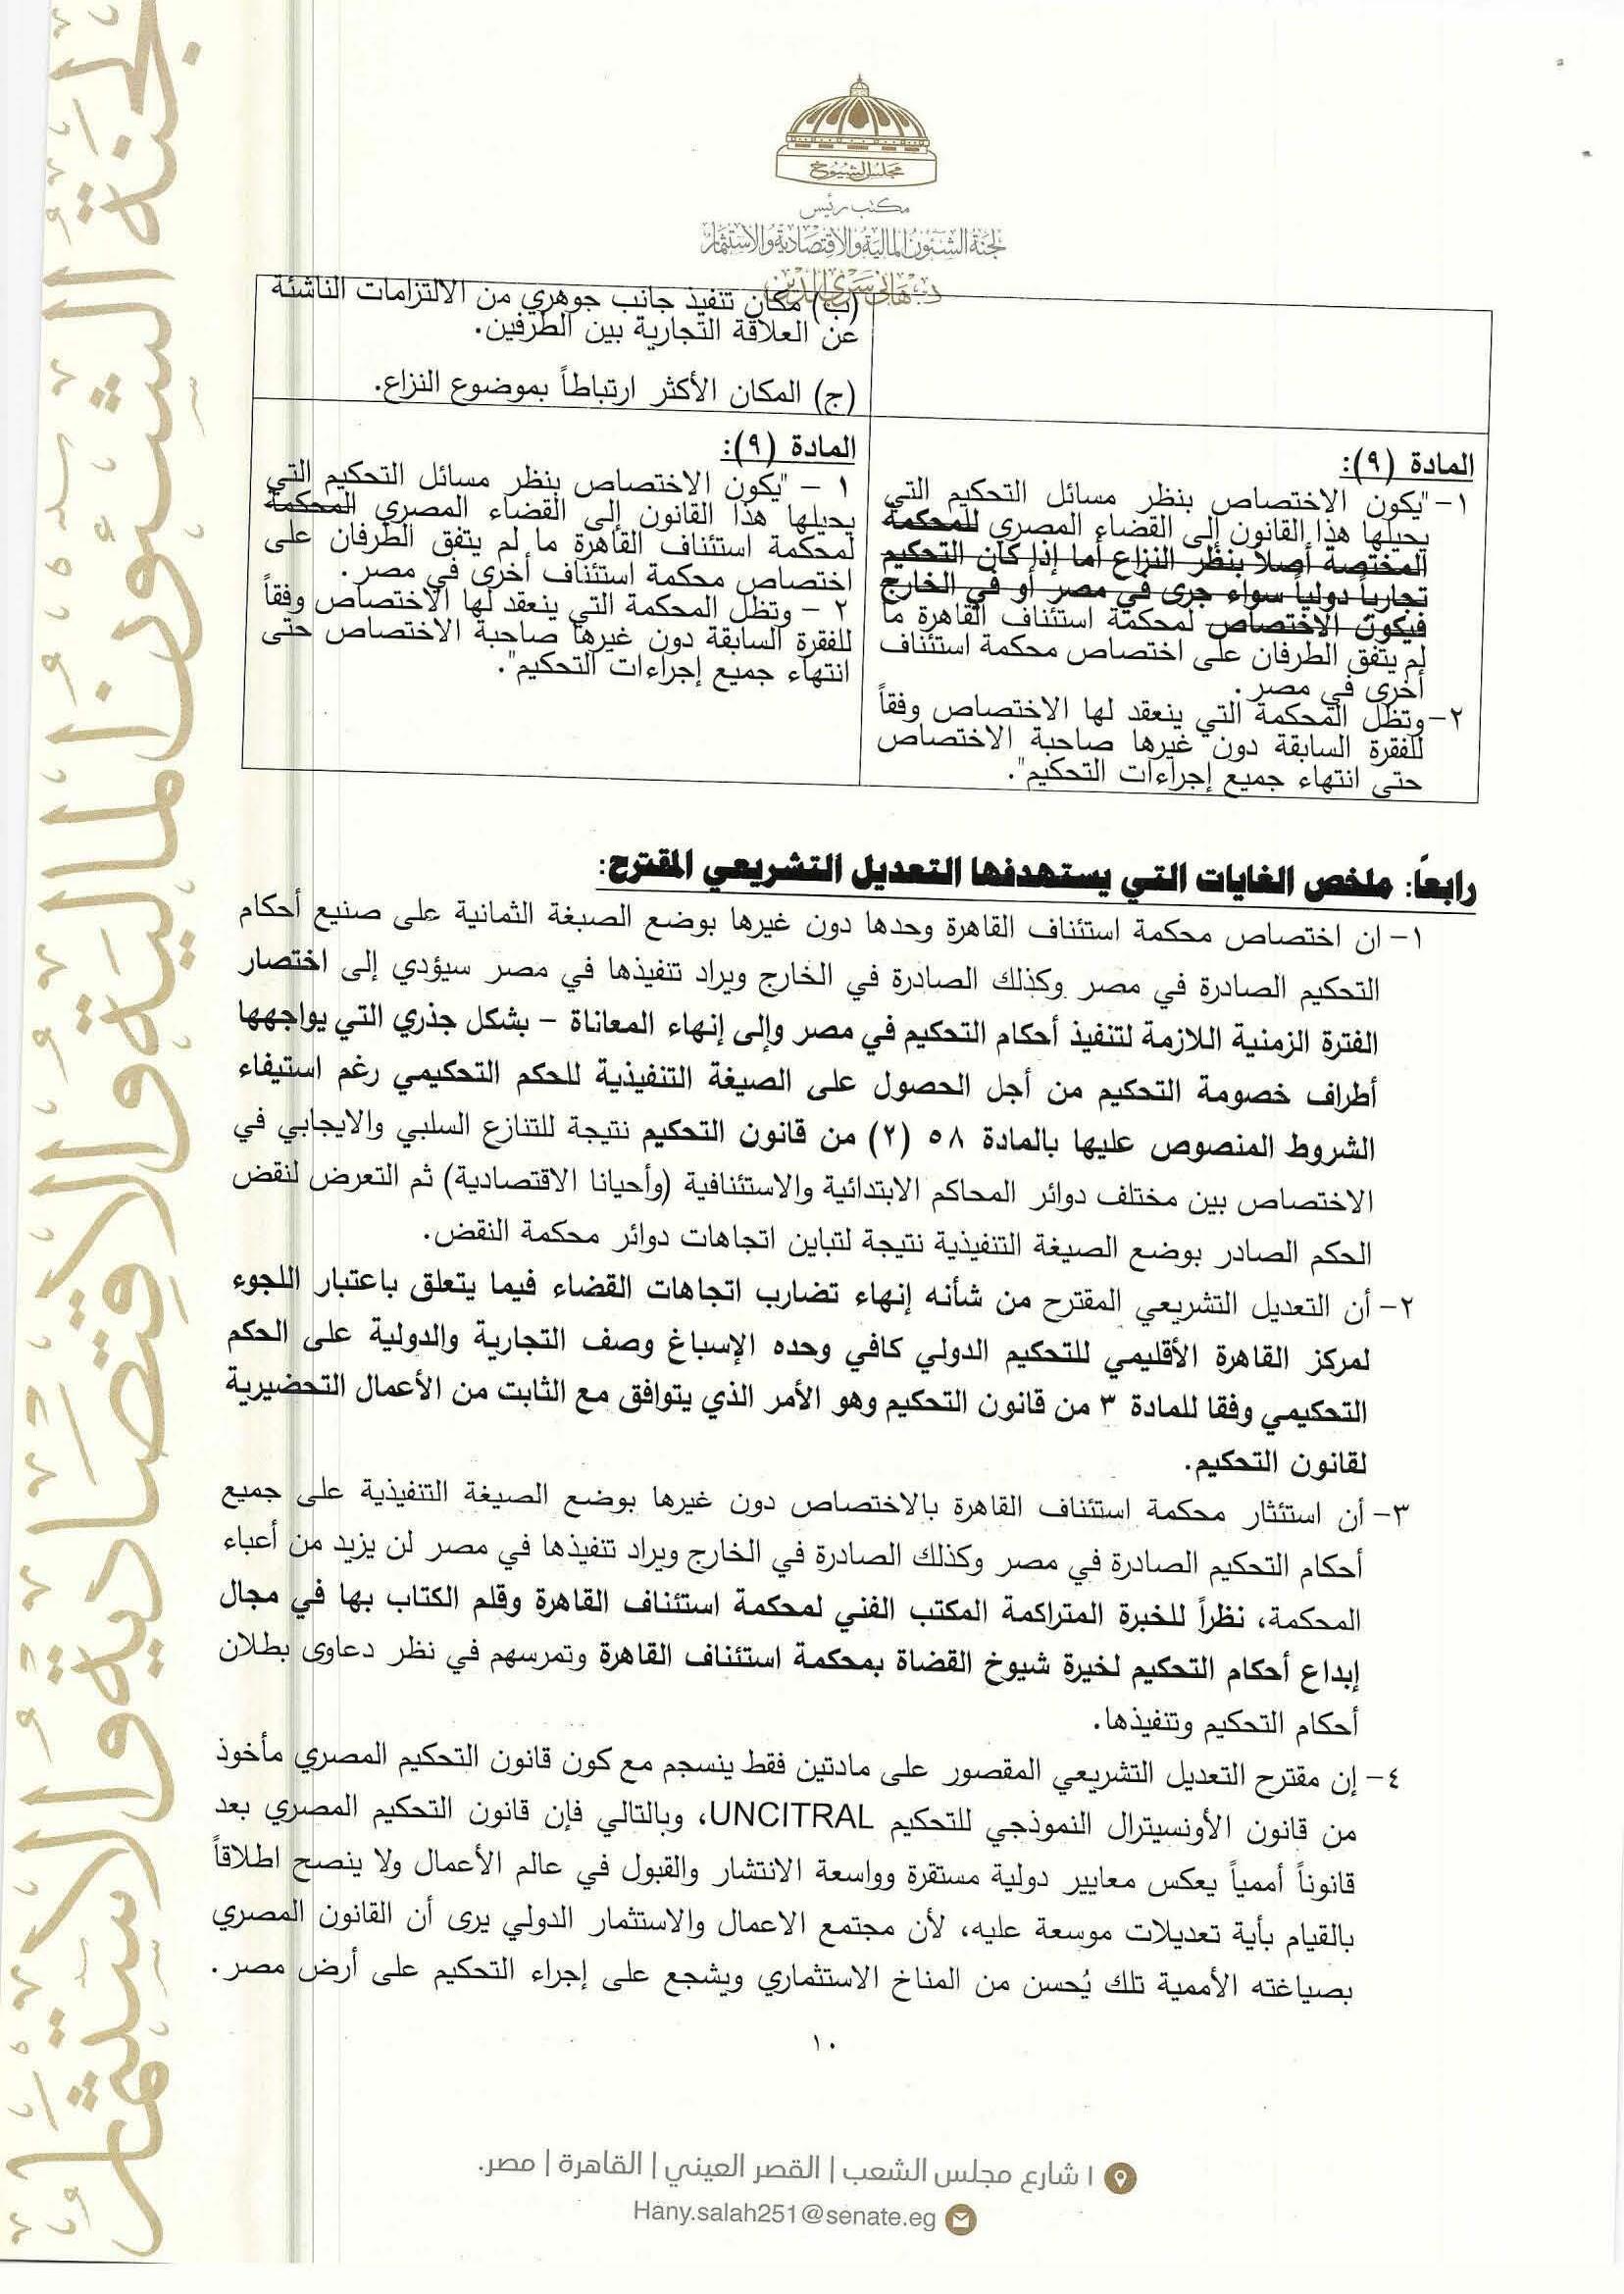 مجلس الشيوخ
مكتب رئيس
لجنة الشئون المالية والاقتصادية والاستثمار
د. هاني سري الدين
(ب) مكان تنفيذ جانب جوهري من الالتزامات الناشئة
عن العلاقة التجارية بين الطرفين.
(ج) المكان الأكثر ارتباطاً بموضوع النزاع.
المادة (٩):
١-"يكون الاختصاص بنظر مسائل التحكيم التي
يحيلها هذا القانون إلى القضاء المصري للمحكمة
المختصة أصلا بنظر النزاع أما إذا كان التحكيم
تجارياً دولياً سواء جرى في مصر أو في الخارج
فيكون الاختصاص لمحكمة استئناف القاهرة ما
لم يتفق الطرفان على اختصاص محكمة استئناف
أخرى في مصر.
٢-وتظل المحكمة التي ينعقد لها الاختصاص وفقاً
للفقرة السابقة دون غيرها صاحبة الاختصاص
حتى انتهاء جميع إجراءات التحكيم".
المادة (٩):
١ - "يكون الاختصاص بنظر مسائل التحكيم التي
يحيلها هذا القانون إلى القضاء المصري المحكمة
لمحكمة استئناف القاهرة ما لم يتفق الطرفان على
اختصاص محكمة استئناف أخرى في مصر.
٢ - وتظل المحكمة التي ينعقد لها الاختصاص وفقاً
للفقرة السابقة دون غيرها صاحبة الاختصاص حتى
انتهاء جميع إجراءات التحكيم".
رابعاً: ملخص الغايات التي يستهدفها التعديل التشريعي المقترح:
١- ان اختصاص محكمة استئناف القاهرة وحدها دون غيرها بوضع الصبغة الثمانية على صنيع أحكام
التحكيم الصادرة في مصر وكذلك الصادرة في الخارج ويراد تنفيذها في مصر سيؤدي إلى اختصار
الفترة الزمنية اللازمة لتنفيذ أحكام التحكيم في مصر وإلى إنهاء المعاناة – بشكل جذري التي يواجهها
أطراف خصومة التحكيم من أجل الحصول على الصيغة التنفيذية للحكم التحكيمي رغم استيفاء
الشروط المنصوص عليها بالمادة ٥٨ (٢) من قانون التحكيم نتيجة للتنازع السلبي والايجابي في
الاختصاص بين مختلف دوائر المحاكم الابتدائية والاستئنافية (وأحيانا الاقتصادية) ثم التعرض لنقض
الحكم الصادر بوضع الصيغة التنفيذية نتيجة لتباين اتجاهات دوائر محكمة النقض.
٢- أن التعديل التشريعي المقترح من شأنه إنهاء تضارب اتجاهات القضاء فيما يتعلق باعتبار اللجوء
لمركز القاهرة الأقليمي للتحكيم الدولي كافي وحده الإسباغ وصف التجارية والدولية على الحكم
التحكيمي وفقا للمادة ٣ من قانون التحكيم وهو الأمر الذي يتوافق مع الثابت من الأعمال التحضيرية
لقانون التحكيم.
٣- أن استئثار محكمة استئناف القاهرة بالاختصاص دون غيرها بوضع الصيغة التنفيذية على جميع
أحكام التحكيم الصادرة في مصر وكذلك الصادرة في الخارج ويراد تنفيذها في مصر لن يزيد من أعباء
المحكمة، نظراً للخبرة المتراكمة المكتب الفني لمحكمة استئناف القاهرة وقلم الكتاب بها في مجال
إبداع أحكام التحكيم لخيرة شيوخ القضاة بمحكمة استئناف القاهرة وتمرسهم في نظر دعاوى بطلان
أحكام التحكيم وتنفيذها.
٤- إن مقترح التعديل التشريعي المقصور على مادتين فقط ينسجم مع كون قانون التحكيم المصري مأخوذ
من قانون الأونسيترال النموذجي للتحكيم UNCITRAL، وبالتالي فإن قانون التحكيم المصري بعد
قانوناً أممياً يعكس معايير دولية مستقرة وواسعة الانتشار والقبول في عالم الأعمال ولا ينصح اطلاقاً
بالقيام بأية تعديلات موسعة عليه، لأن مجتمع الاعمال والاستثمار الدولي يرى أن القانون المصري
بصياغته الأممية تلك يُحسن من المناخ الاستثماري ويشجع على إجراء التحكيم على أرض مصر.
١٠
١ شارع مجلس الشعب | القصر العيني | القاهرة | مصر.
Hany.salah251@senate.eg
لجنة الشئون المالية والاقتصادية والاستثمار